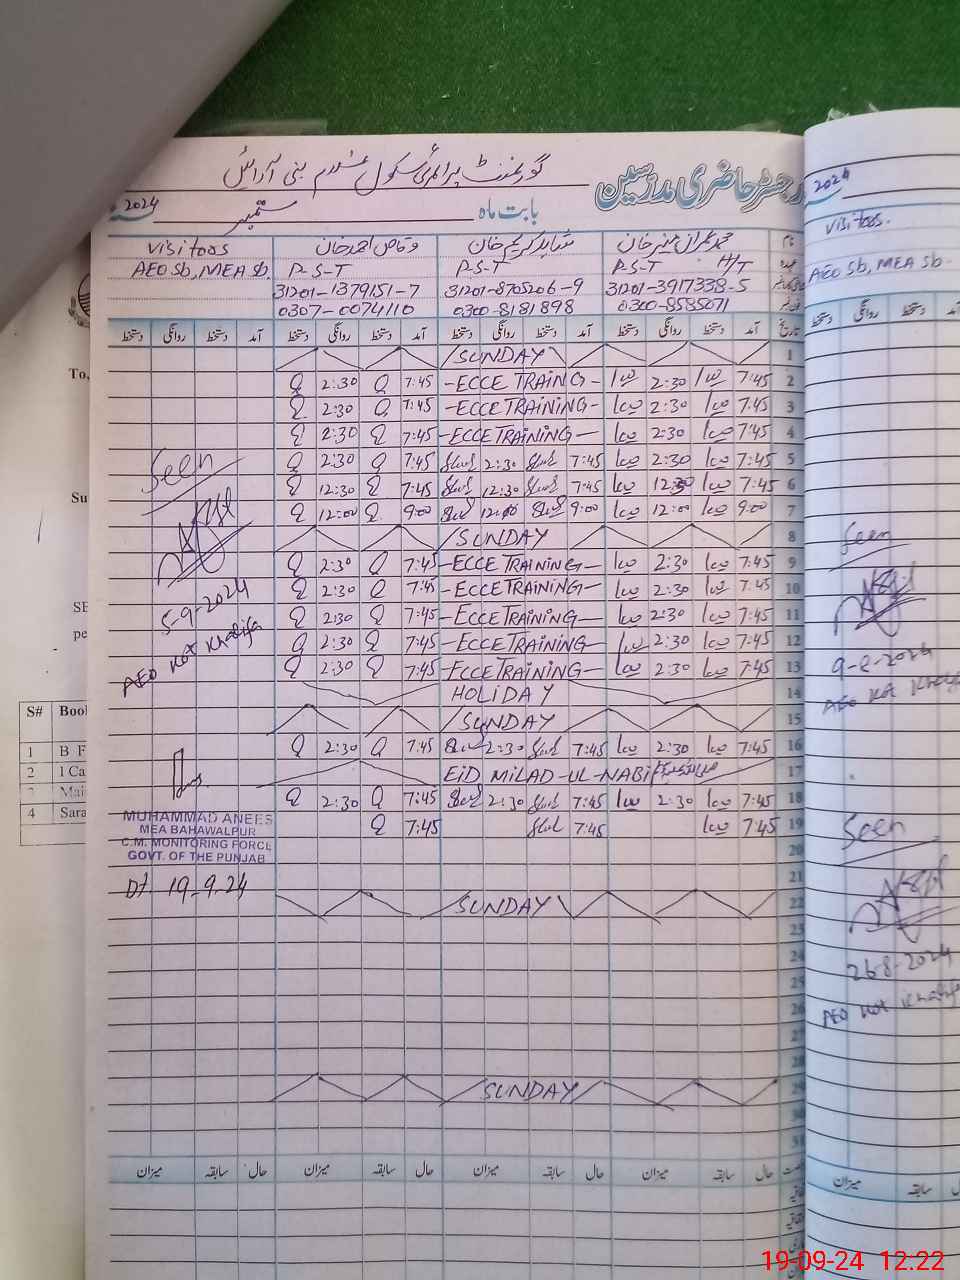 گورنمنٹ پرائمری سکول غلام بنی آرائیں
رجسٹر حاضری مدرسین
بابت ماہ ستمبر 2024
visitoos وقاص احمد خان شاہد کریم خان محمد عمران منیر خان نام
AEO sb, MEA sb. P-S-T P-S-T P-S-T H/T عہدہ
31201-1379151-7 31201-8705206-9 31201-3917338-5
0307-0074110 0300-8181898 0300-8585071
دستخط روانگی دستخط آمد دستخط روانگی دستخط آمد دستخط روانگی دستخط آمد دستخط روانگی دستخط آمد تاریخ
SUNDAY 1
2:30 7:45 -ECCE TRAING- 2:30 7:45 2
2:30 7:45 -ECCE TRAINING- 2:30 7:45 3
2:30 7:45 -ECCE TRAINING- 2:30 7:45 4
2:30 7:45 2:30 7:45 2:30 7:45 5
12:30 7:45 12:30 7:45 12:30 7:45 6
12:00 9:00 12:00 9:00 12:00 9:00 7
SUNDAY 8
2:30 7:45 -ECCE TRAINING- 2:30 7:45 9
2:30 7:45 -ECCE TRAINING- 2:30 7:45 10
2:30 7:45 -ECCE TRAINING- 2:30 7:45 11
2:30 7:45 -ECCE TRAINING- 2:30 7:45 12
2:30 7:45 -ECCE TRAINING- 2:30 7:45 13
HOLIDAY 14
SUNDAY 15
2:30 7:45 2:30 7:45 2:30 7:45 16
EID MILAD-UL-NABI 17
2:30 7:45 2:30 7:45 2:30 7:45 18
7:45 7:45 7:45 19
20
21
SUNDAY 22
23
24
25
26
27
28
SUNDAY 29
30
31
میزان سابقہ حال میزان سابقہ حال میزان سابقہ حال میزان سابقہ حال
Seen
5-9-2024
AEO Kot Khalifa
MUHAMMAD ANEES
MEA BAHAWALPUR
C.M. MONITORING FORCE
GOVT. OF THE PUNJAB
Dt 19-9-24
2024
visitoos.
AEO Sb, MEA Sb.
دستخط روانگی دستخط آمد
Seen
AEO Kot
Seen
26-8-2024
AEO Kot Khalifa
میزان سابقہ
To,
Su
SE
pe
S# Book
1 B F
2 1 Ca
3 Mai
4 Sara
19-09-24 12.22